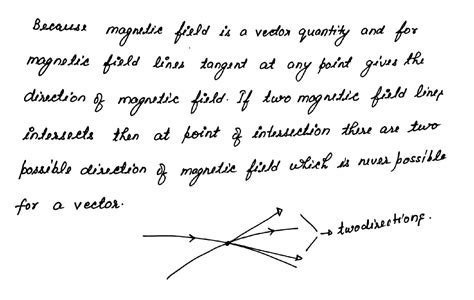 Because magnetic field is a vector quantity and for
magnetic field lines tangent at any point gives the
direction of magnetic field. If two magnetic field lines
intersects then at point of intersection there are two
possible direction of magnetic field which is never possible
for a vector.
two directions.